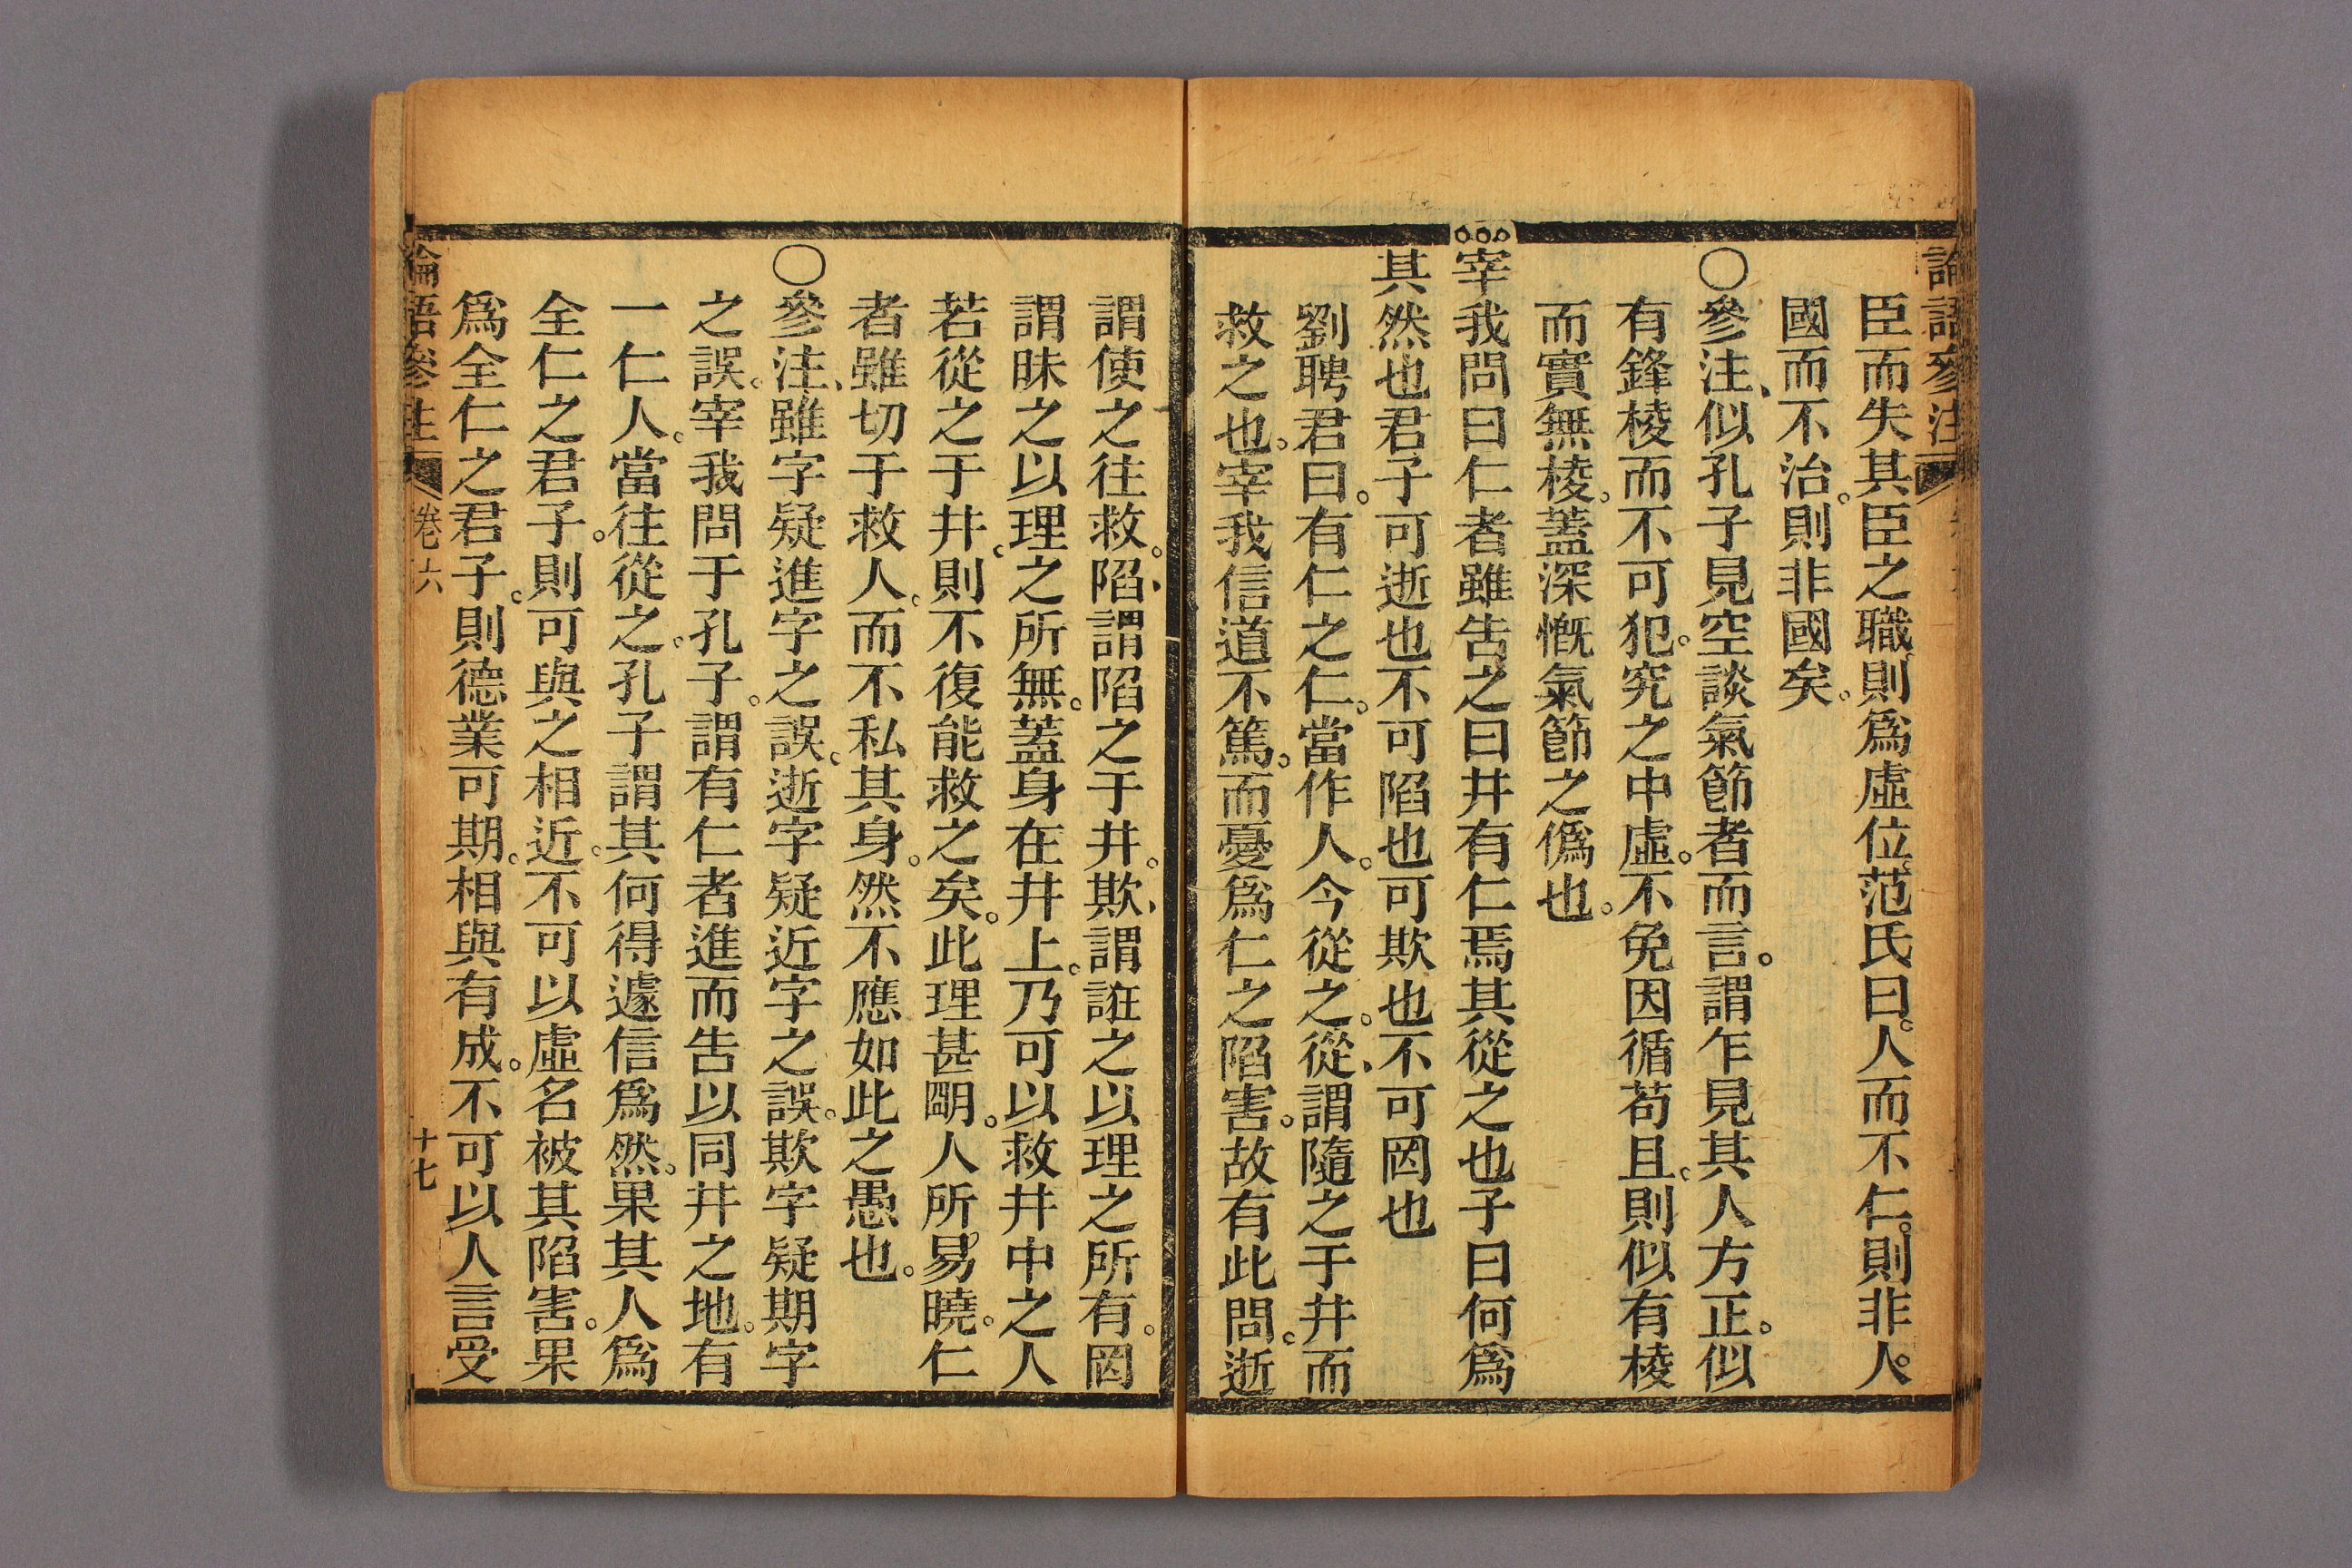 論語參注
臣而失其臣之職。則爲虛位。范氏曰。人而不仁。則非人。
國而不治。則非國矣。
○參注、似孔子見空談氣節者而言。謂乍見其人方正。似
有鋒棱而不可犯。究之中虛。不免因循苟且。則似有棱
而實無棱。蓋深慨氣節之僞也。
宰我問曰仁者雖吿之曰井有仁焉其從之也子曰何爲
其然也君子可逝也不可陷也可欺也不可罔也
劉聘君曰。有仁之仁。當作人。今從之。從、謂隨之于井而
救之也。宰我信道不篤。而憂爲仁之陷害。故有此問。逝
謂使之往救。陷、謂陷之于井。欺、謂誑之以理之所有。罔
謂昧之以理之所無。蓋身在井上。乃可以救井中之人
若從之于井。則不復能救之矣。此理甚明。人所易曉。仁
者雖切于救人。而不私其身。然不應如此之愚也。
○參注、雖字疑進字之誤。逝字疑近字之誤。欺字疑期字
之誤。宰我問于孔子。謂有仁者進而吿以同井之地。有
一仁人。當往從之。孔子謂其何得遽信爲然。果其人爲
全仁之君子。則可與之相近。不可以虛名被其陷害。果
爲全仁之君子。則德業可期。相與有成。不可以人言受
論語參注
卷六
十七